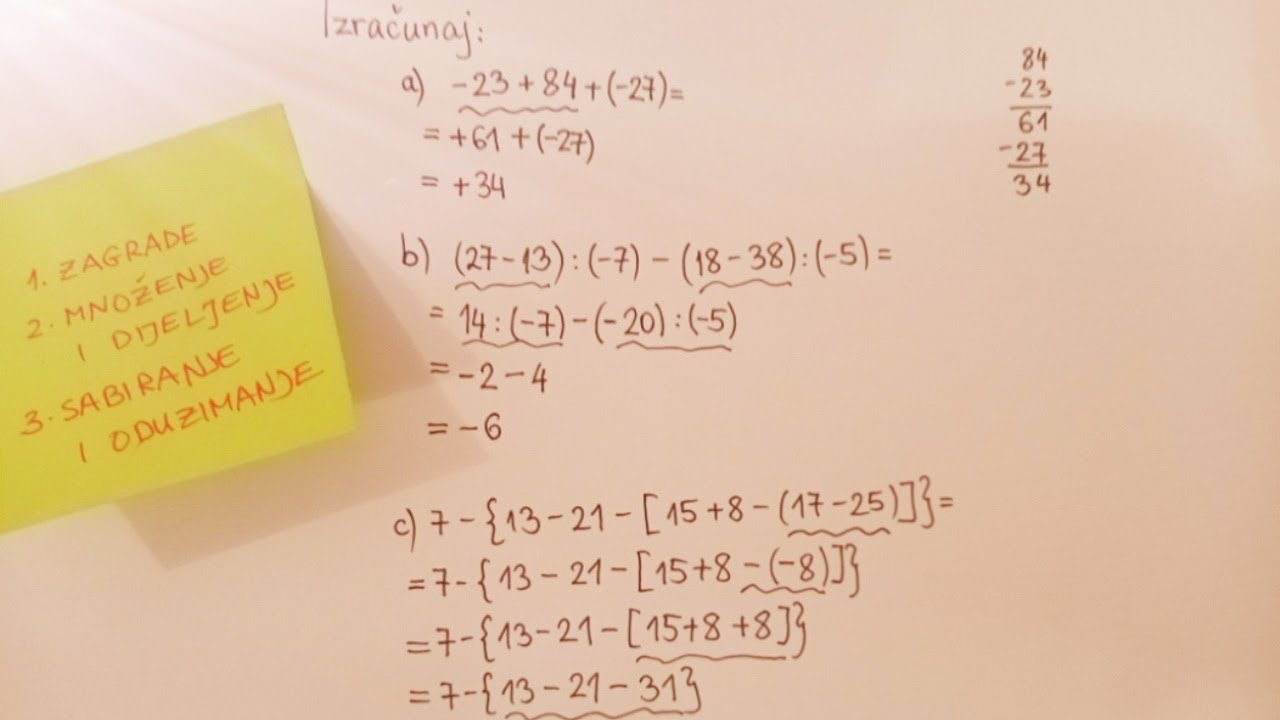 Izračunaj:
a) -23 + 84 + (-27) =
= +61 + (-27)
= +34
84
-23
61
-27
34
1. ZAGRADE
2. MNOŽENJE
I DIJELJENJE
3. SABIRANJE
I ODUZIMANJE
b) (27 - 13) : (-7) - (18 - 38) : (-5) =
= 14 : (-7) - (-20) : (-5)
= -2 - 4
= -6
c) 7 - {13 - 21 - [15 + 8 - (17 - 25)]} =
= 7 - {13 - 21 - [15 + 8 - (-8)]}
= 7 - {13 - 21 - [15 + 8 + 8]}
= 7 - {13 - 21 - 31}